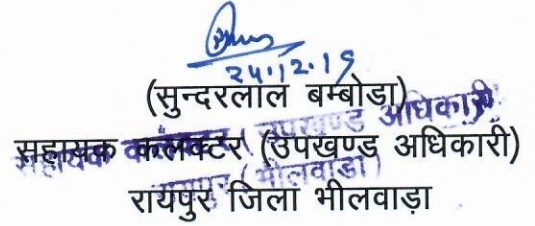 24.12.19
(सुन्दरलाल बम्बोडा)
सहायक कलक्टर (उपखण्ड अधिकारी)
सहायक कलक्टर ( उपखण्ड अधिकारी
रायपुर (भीलवाडा)
रायपुर जिला भीलवाड़ा